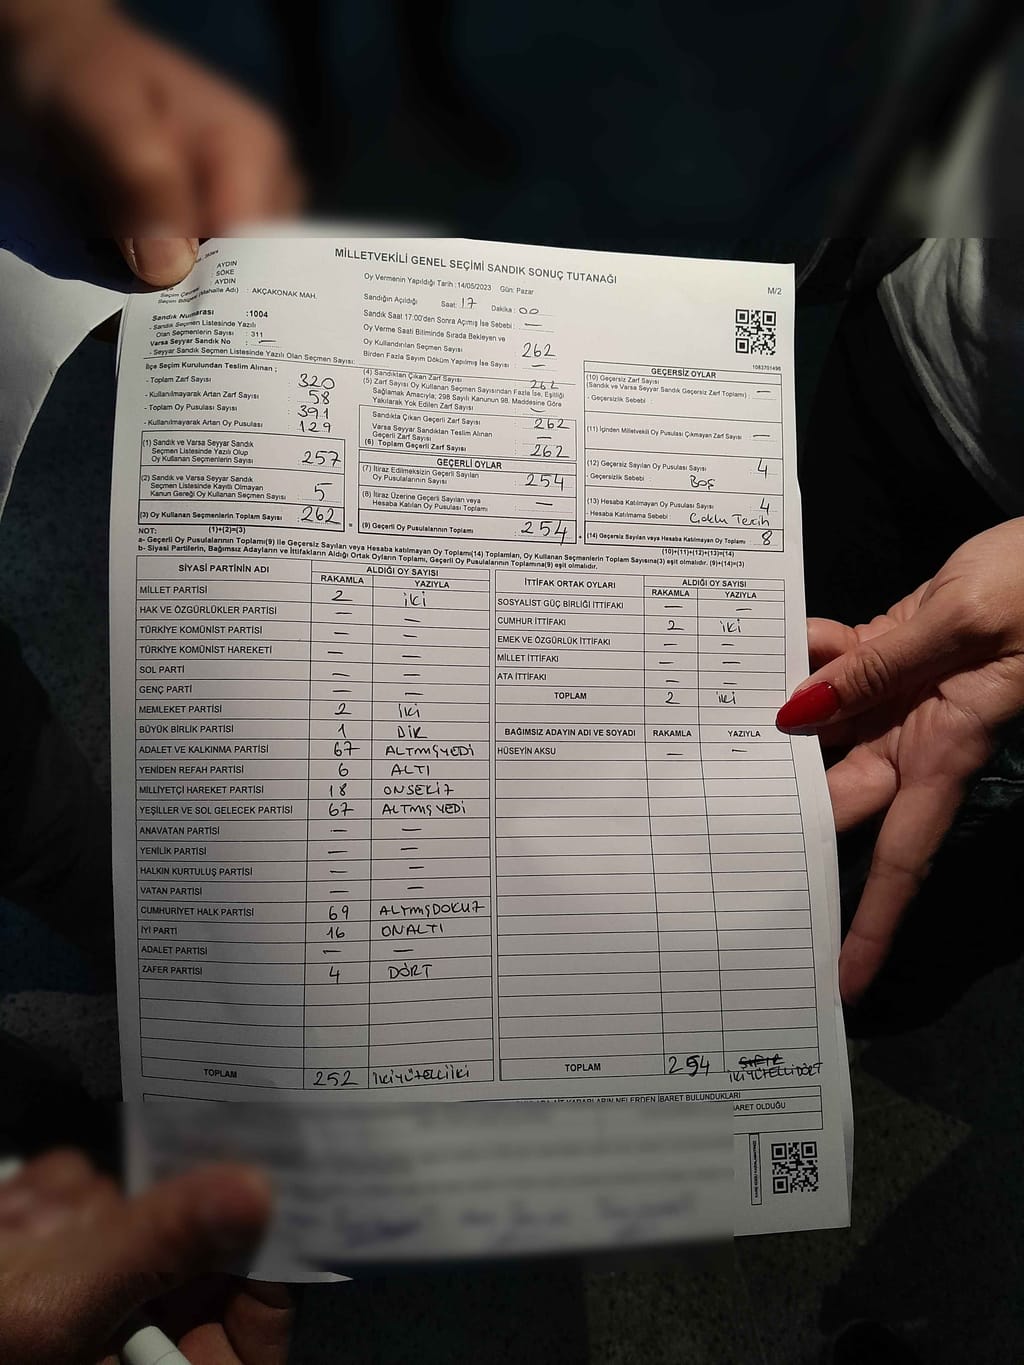 MİLLETVEKİLİ GENEL SEÇİMİ SANDIK SONUÇ TUTANAĞI
M/2
AYDIN
SÖKE
AYDIN
Seçim Bölgesi (Mahalle Adı) : AKÇAKONAK MAH.
Sandık Numarası :1004
- Sandık Seçmen Listesinde Yazılı
Olan Seçmenlerin Sayısı : 311
Varsa Seyyar Sandık No : —
- Seyyar Sandık Seçmen Listesinde Yazılı Olan Seçmen Sayısı:
Oy Vermenin Yapıldığı Tarih :14/05/2023 Gün: Pazar
Sandığın Açıldığı Saat: 17 Dakika : 00
Sandık Saat 17.00'den Sonra Açımış İse Sebebi : —
Oy Verme Saati Bitiminde Sırada Bekleyen ve
Oy Kullandırılan Seçmen Sayısı : 262
Birden Fazla Sayım Döküm Yapılmış İse Sayısı : —
1083701496
İlçe Seçim Kurulundan Teslim Alınan ;
- Toplam Zarf Sayısı : 320
- Kullanılmayarak Artan Zarf Sayısı : 58
- Toplam Oy Pusulası Sayısı : 391
- Kullanılmayarak Artan Oy Pusulası : 129
(1) Sandık ve Varsa Seyyar Sandık
Seçmen Listesinde Yazılı Olup
Oy Kullanan Seçmenlerin Sayısı : 257
(2) Sandık ve Varsa Seyyar Sandık
Seçmen Listesinde Kayıtlı Olmayan
Kanun Gereği Oy Kullanan Seçmen Sayısı : 5
(3) Oy Kullanan Seçmenlerin Toplam Sayısı : 262
(1)+(2)=(3)
(4) Sandıktan Çıkan Zarf Sayısı : 262
(5) Zarf Sayısı Oy Kullanan Seçmen Sayısından Fazla İse, Eşitliği
Sağlamak Amacıyla; 298 Sayılı Kanunun 98. Maddesine Göre
Yakılarak Yok Edilen Zarf Sayısı : —
Sandıkta Çıkan Geçerli Zarf Sayısı : 262
Varsa Seyyar Sandıktan Teslim Alınan
Geçerli Zarf Sayısı : —
(6) Toplam Geçerli Zarf Sayısı : 262
GEÇERLİ OYLAR
(7) İtiraz Edilmeksizin Geçerli Sayılan
Oy Pusulalarının Sayısı : 254
(8) İtiraz Üzerine Geçerli Sayılan veya
Hesaba Katılan Oy Pusulası Toplamı : —
(9) Geçerli Oy Pusulalarının Toplamı : 254
GEÇERSİZ OYLAR
(10) Geçersiz Zarf Sayısı
(Sandık ve Varsa Seyyar Sandık Geçersiz Zarf Toplamı) : —
- Geçersizlik Sebebi :
(11) İçinden Milletvekili Oy Pusulası Çıkmayan Zarf Sayısı : —
(12) Geçersiz Sayılan Oy Pusulası Sayısı : 4
- Geçersizlik Sebebi : Boş
(13) Hesaba Katılmayan Oy Pusulası Sayısı : 4
- Hesaba Katılmama Sebebi : Çoklu Tercih
(14) Geçersiz Sayılan veya Hesaba Katılmayan Oy Toplamı : 8
(10)+(11)+(12)+(13)=(14)
NOT:
a- Geçerli Oy Pusulalarının Toplamı(9) ile Geçersiz Sayılan veya Hesaba katılmayan Oy Toplamı(14) Toplamları, Oy Kullanan Seçmenlerin Toplam Sayısına(3) eşit olmalıdır. (9)+(14)=(3)
b- Siyasi Partilerin, Bağımsız Adayların ve İttifakların Aldığı Ortak Oyların Toplamı, Geçerli Oy Pusulalarının Toplamına(9) eşit olmalıdır.
SİYASİ PARTİNİN ADI ALDIĞI OY SAYISI
RAKAMLA YAZIYLA
MİLLET PARTİSİ 2 iki
HAK VE ÖZGÜRLÜKLER PARTİSİ — —
TÜRKİYE KOMÜNİST PARTİSİ — —
TÜRKİYE KOMÜNİST HAREKETİ — —
SOL PARTİ — —
GENÇ PARTİ — —
MEMLEKET PARTİSİ 2 iki
BÜYÜK BİRLİK PARTİSİ 1 BİR
ADALET VE KALKINMA PARTİSİ 67 ALTMIŞYEDİ
YENİDEN REFAH PARTİSİ 6 ALTI
MİLLİYETÇİ HAREKET PARTİSİ 18 ONSEKİZ
YEŞİLLER VE SOL GELECEK PARTİSİ 67 ALTMIŞYEDİ
ANAVATAN PARTİSİ — —
YENİLİK PARTİSİ — —
HALKIN KURTULUŞ PARTİSİ — —
VATAN PARTİSİ — —
CUMHURİYET HALK PARTİSİ 69 ALTMIŞDOKUZ
İYİ PARTİ 16 ONALTI
ADALET PARTİSİ — —
ZAFER PARTİSİ 4 DÖRT
TOPLAM 252 İKİYÜZELLİİKİ
İTTİFAK ORTAK OYLARI ALDIĞI OY SAYISI
RAKAMLA YAZIYLA
SOSYALİST GÜÇ BİRLİĞİ İTTİFAKI — —
CUMHUR İTTİFAKI 2 iki
EMEK VE ÖZGÜRLÜK İTTİFAKI — —
MİLLET İTTİFAKI — —
ATA İTTİFAKI — —
TOPLAM 2 iki
BAĞIMSIZ ADAYIN ADI VE SOYADI RAKAMLA YAZIYLA
HÜSEYİN AKSU — —
TOPLAM 254 İKİYÜZELLİDÖRT
KARARLARIN NELERDEN İBARET BULUNDUKLARI
İBARET OLDUĞU